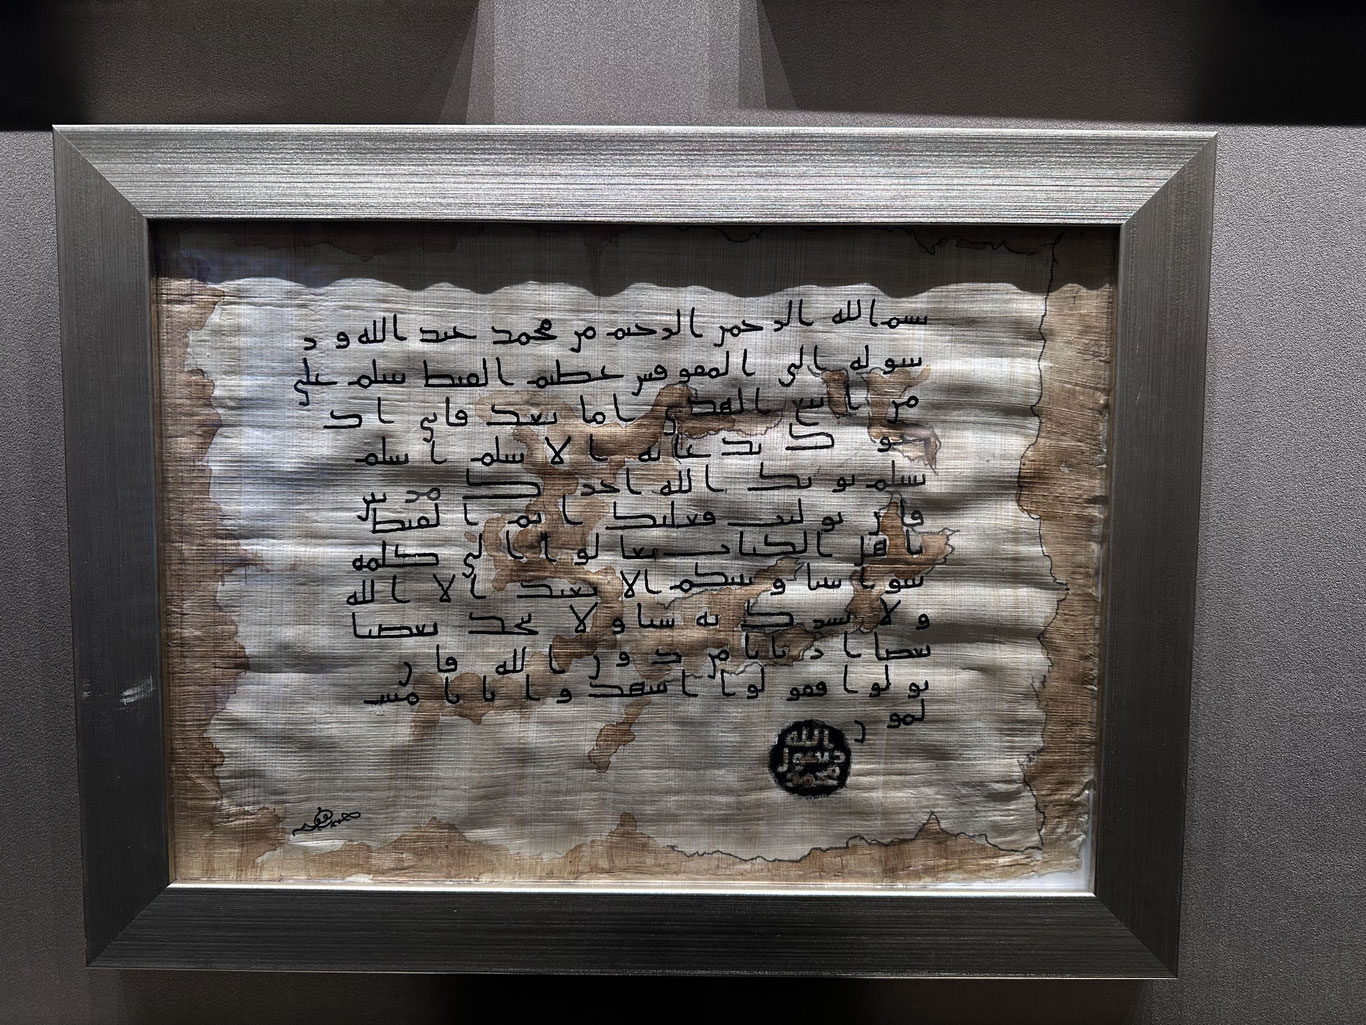 بسم الله الرحمن الرحيم من محمد عبد الله ور
سوله الى المقوقس عظيم القبط سلم على
من اتبع الهدى اما بعد فاني اد
عوك بدعايه الاسلم اسلم
تسلم يوتك الله اجرك مرتين
فان توليت فعليك اثم القبط
يا هل الكتاب تعالوا الى كلمه
سوا بيننا وبينكم الا نعبد الا الله
ولا نشرك به شيا ولا يتخذ بعضنا
بعضا اربابا من دون الله فان
تولوا فقولوا اشهدوا بانا مسـ
لمون
الله
رسول
محمد